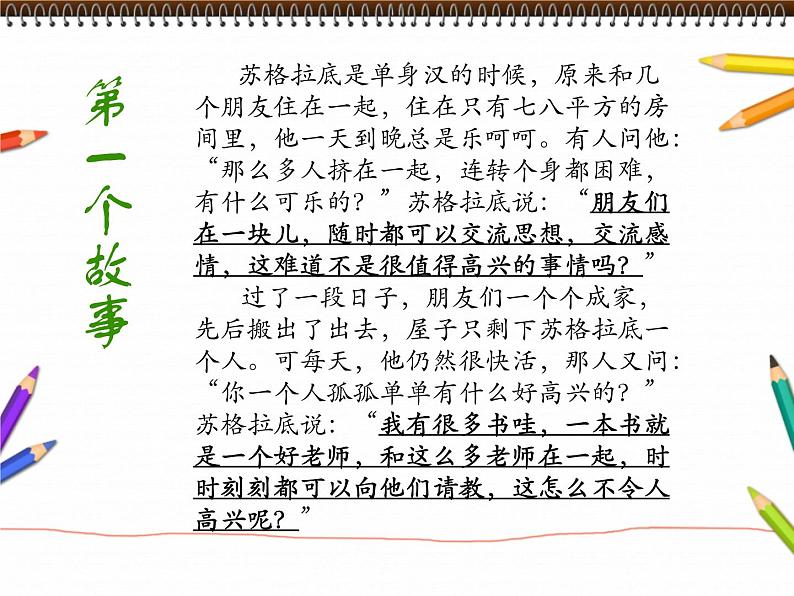 第一个故事
苏格拉底是单身汉的时候，原来和几
个朋友住在一起，住在只有七八平方的房
间里，他一天到晚总是乐呵呵。有人问他：
“那么多人挤在一起，连转个身都困难，
有什么可乐的？”苏格拉底说：“朋友们
在一块儿，随时都可以交流思想，交流感
情，这难道不是很值得高兴的事情吗？”
过了一段日子，朋友们一个个成家，
先后搬出了出去，屋子只剩下苏格拉底一
个人。可每天，他仍然很快活，那人又问：
“你一个人孤孤单单有什么好高兴的？”
苏格拉底说：“我有很多书哇，一本书就
是一个好老师，和这么多老师在一起，时
时刻刻都可以向他们请教，这怎么不令人
高兴呢？”